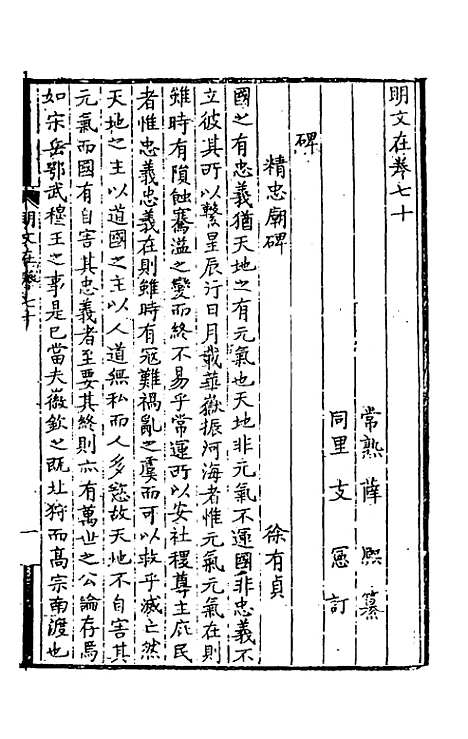 明文在卷七十
常熟薛熙纂
同里支𡩋訂
碑
精忠廟碑
徐有貞
國之有忠義猶天地之有元氣也天地非元氣不運國非忠義不
立彼其所以繫星辰行日月載華嶽振河海者惟元氣元氣在則
雖時有隕蝕騫溢之變而終不易乎常運所以安社稷尊主庇民
者惟忠義忠義在則雖時有冦難禍亂之虞而可以救乎滅亡然
天地之主以道國之主以人道無私而人多慾故天地不自害其
元氣而國有自害其忠義者至要其終則亦有萬世之公論存焉
如宋岳鄂武穆王之事是已當夫徽欽之既北狩而高宗南渡也
明文在卷七十
一